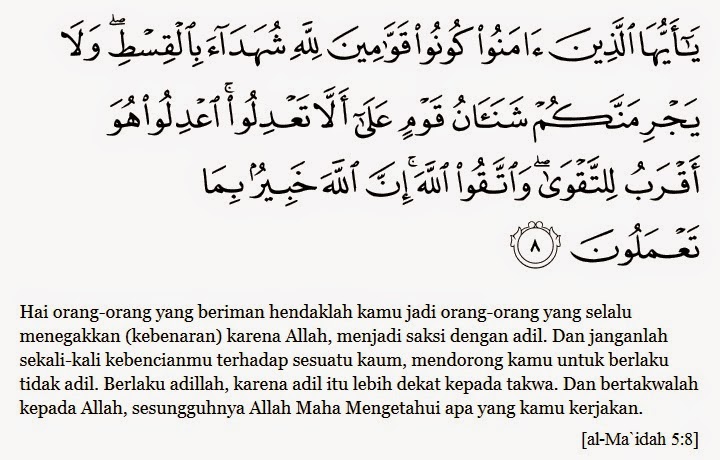 يَٰٓأَيُّهَا ٱلَّذِينَ ءَامَنُوا۟ كُونُوا۟ قَوَّٰمِينَ لِلَّهِ شُهَدَآءَ بِٱلْقِسْطِ ۖ وَلَا
يَجْرِمَنَّكُمْ شَنَـَٔانُ قَوْمٍ عَلَىٰٓ أَلَّا تَعْدِلُوا۟ ۚ ٱعْدِلُوا۟ هُوَ
أَقْرَبُ لِلتَّقْوَىٰ ۖ وَٱتَّقُوا۟ ٱللَّهَ ۚ إِنَّ ٱللَّهَ خَبِيرٌۢ بِمَا
تَعْمَلُونَ ٨
Hai orang-orang yang beriman hendaklah kamu jadi orang-orang yang selalu
menegakkan (kebenaran) karena Allah, menjadi saksi dengan adil. Dan janganlah
sekali-kali kebencianmu terhadap sesuatu kaum, mendorong kamu untuk berlaku
tidak adil. Berlaku adillah, karena adil itu lebih dekat kepada takwa. Dan bertakwalah
kepada Allah, sesungguhnya Allah Maha Mengetahui apa yang kamu kerjakan.
[al-Ma`idah 5:8]